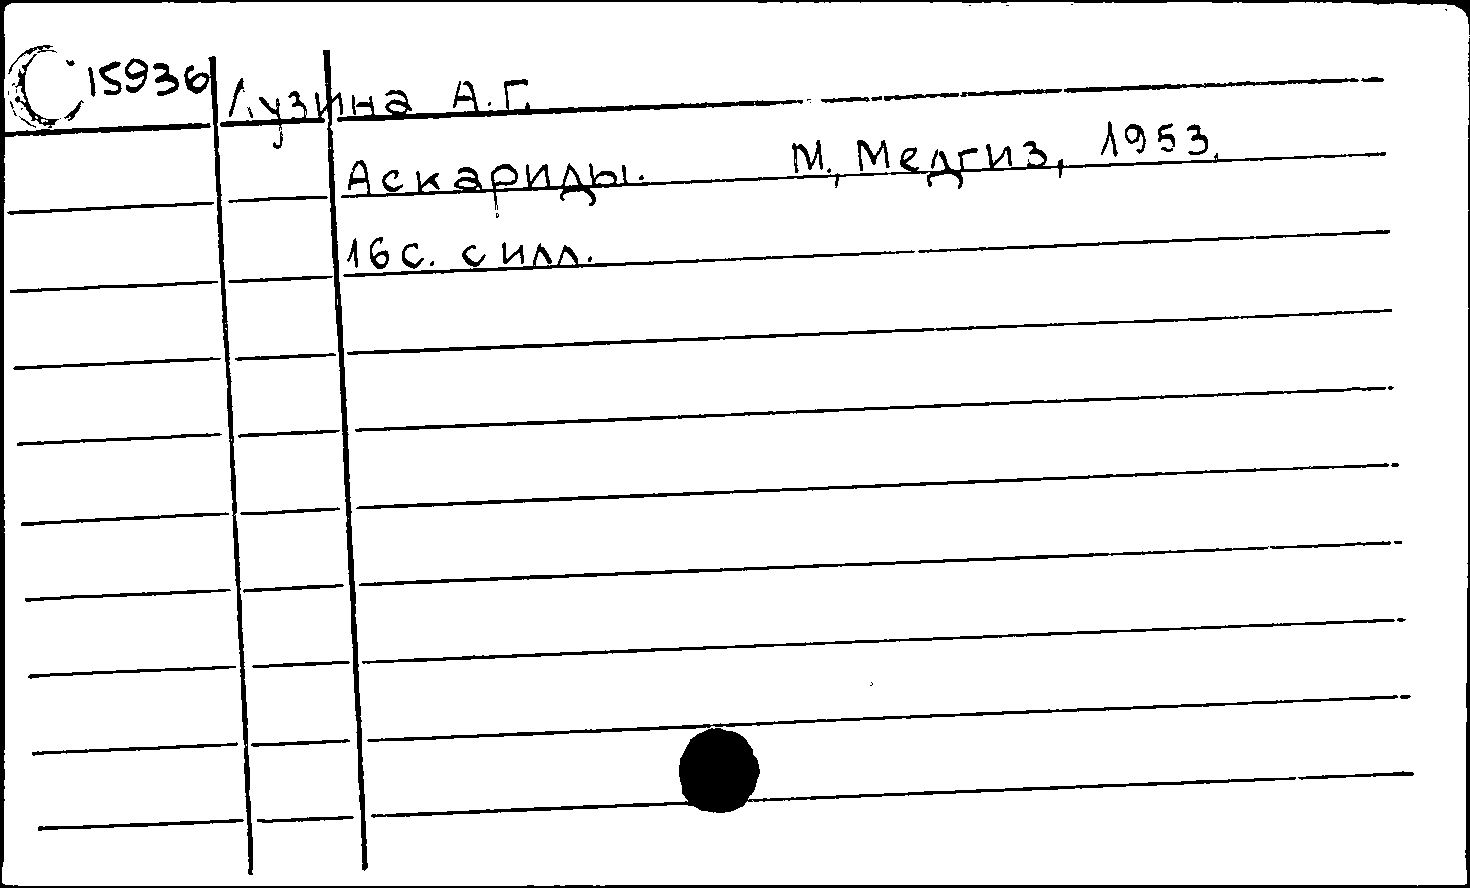 С 15936 Лузина А.Г.
Аскариды. М., Медгиз, 1953.
16 с. с илл.